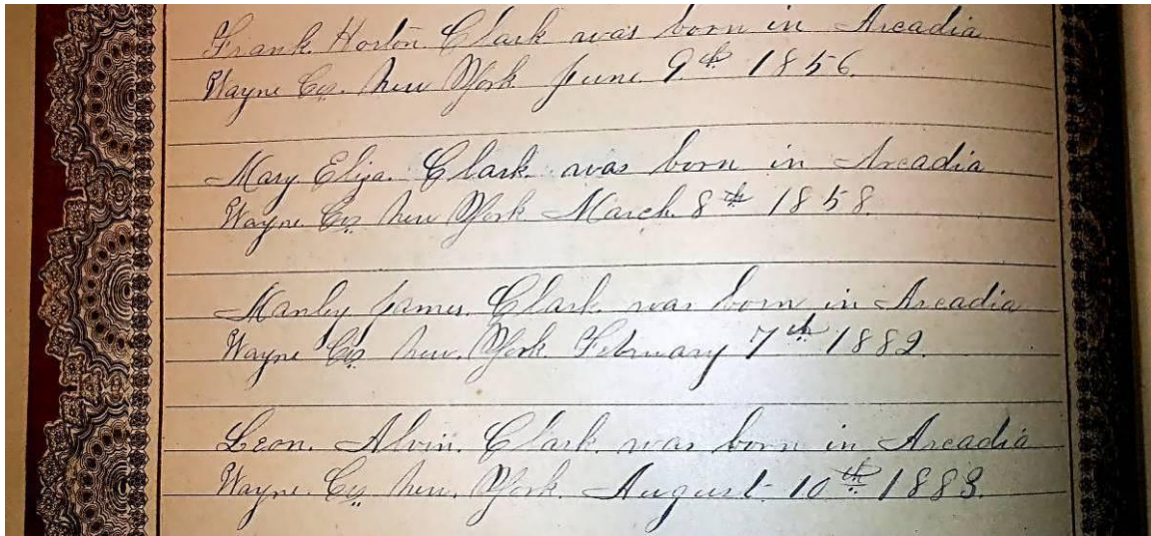 Frank. Horton. Clark was born in Arcadia
Wayne Co. New York June 9th 1856.
Mary Eliza. Clark was born in Arcadia
Wayne Co. New York March. 8th 1858.
Manley James. Clark. was born in Arcadia
Wayne Co. New. York. February 7th 1882.
Leon. Alvin. Clark. was born in Arcadia
Wayne. Co. New. York. August. 10th 1883.